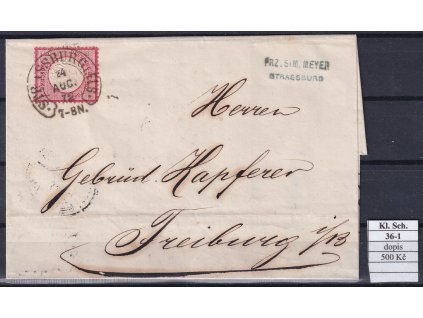 STRASSBURG i. ELS.
24
AUG.
72
7-8N.
FRZ. SIM. MEYER
STRASSBURG
Herren
Gebrüd. Kapferer
Freiburg i/B
Kl. Sch.
36-1
dopis
500 Kč